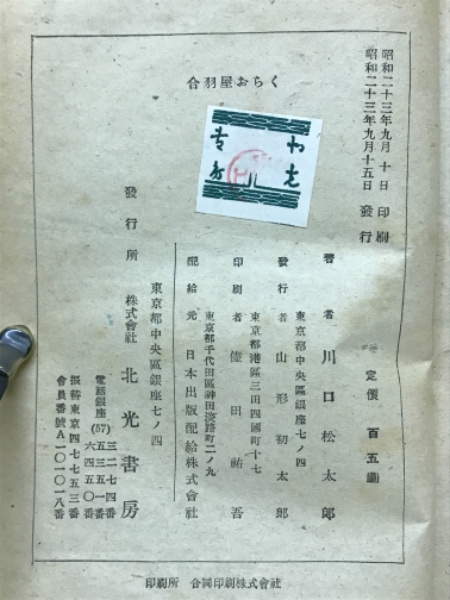 昭和二十三年九月十日 印刷
昭和二十三年九月十五日 發行
合羽屋おらく
定價 百五圓
著者 川口松太郎
東京都中央區銀座七ノ四
發行者 山形初太郎
東京都港區三田四國町十七
印刷者 田祐吾
東京都千代田區神田淡路町二ノ九
配給元 日本出版配給株式會社
東京都中央區銀座七ノ四
發行所 株式會社 北光書房
電話銀座(57) 三二七四番
五三五一番
六四五〇番
振替東京四七七五三番
會員番號A一〇一〇一八番
北光
書房
印刷所 合同印刷株式會社